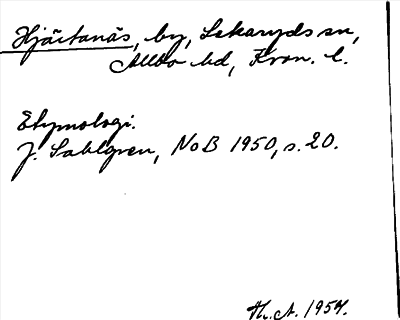 Hjärtanäs, by, Sekaryds sn,
Allbo hd, Kron. l.
Etymologi.
J. Sahlgren, NoB 1950, s. 20.
Th. A. 1954.